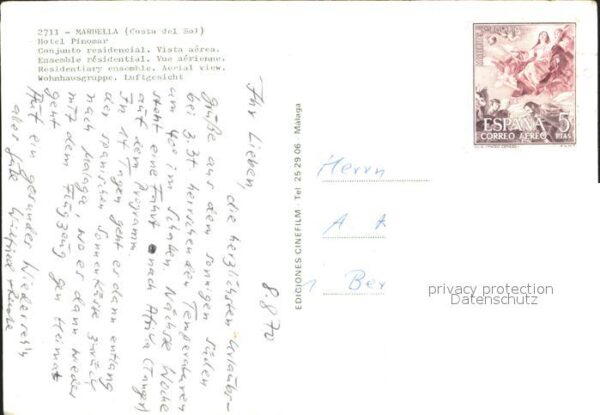 2711 - MARBELLA (Costa del Sol)
Hotel Pinomar
Conjunto residencial. Vista aérea.
Ensemble résidential. Vue aérienne.
Residentiary ensemble. Aerial view.
Wohnhausgruppe. Luftgesicht
8.8.70
Ihr Lieben,
die herzlichsten Urlauts-
grüße aus dem sonnigen Süden
bei z.Zt. herrschenden Temperaturen
um 40° im Schatten. Nächste Woche
steht eine Fahrt nach Afrika (Tanger)
auf dem Programm.
In 14 Tagen geht es dann entlang
der spanischen Sonnenküste zurück
nach Malaga, wo es dann wieder
mit dem Flugzeug gen Heimat
geht.
Auf ein gesundes Wiedersehn
alles Gute Winfried
EDICIONES CINEFILM - Tel 25 29 06 - Málaga
ESPAÑA 5
CORREO AÉREO PTAS
Herrn
A
Ber
privacy protection
Datenschutz